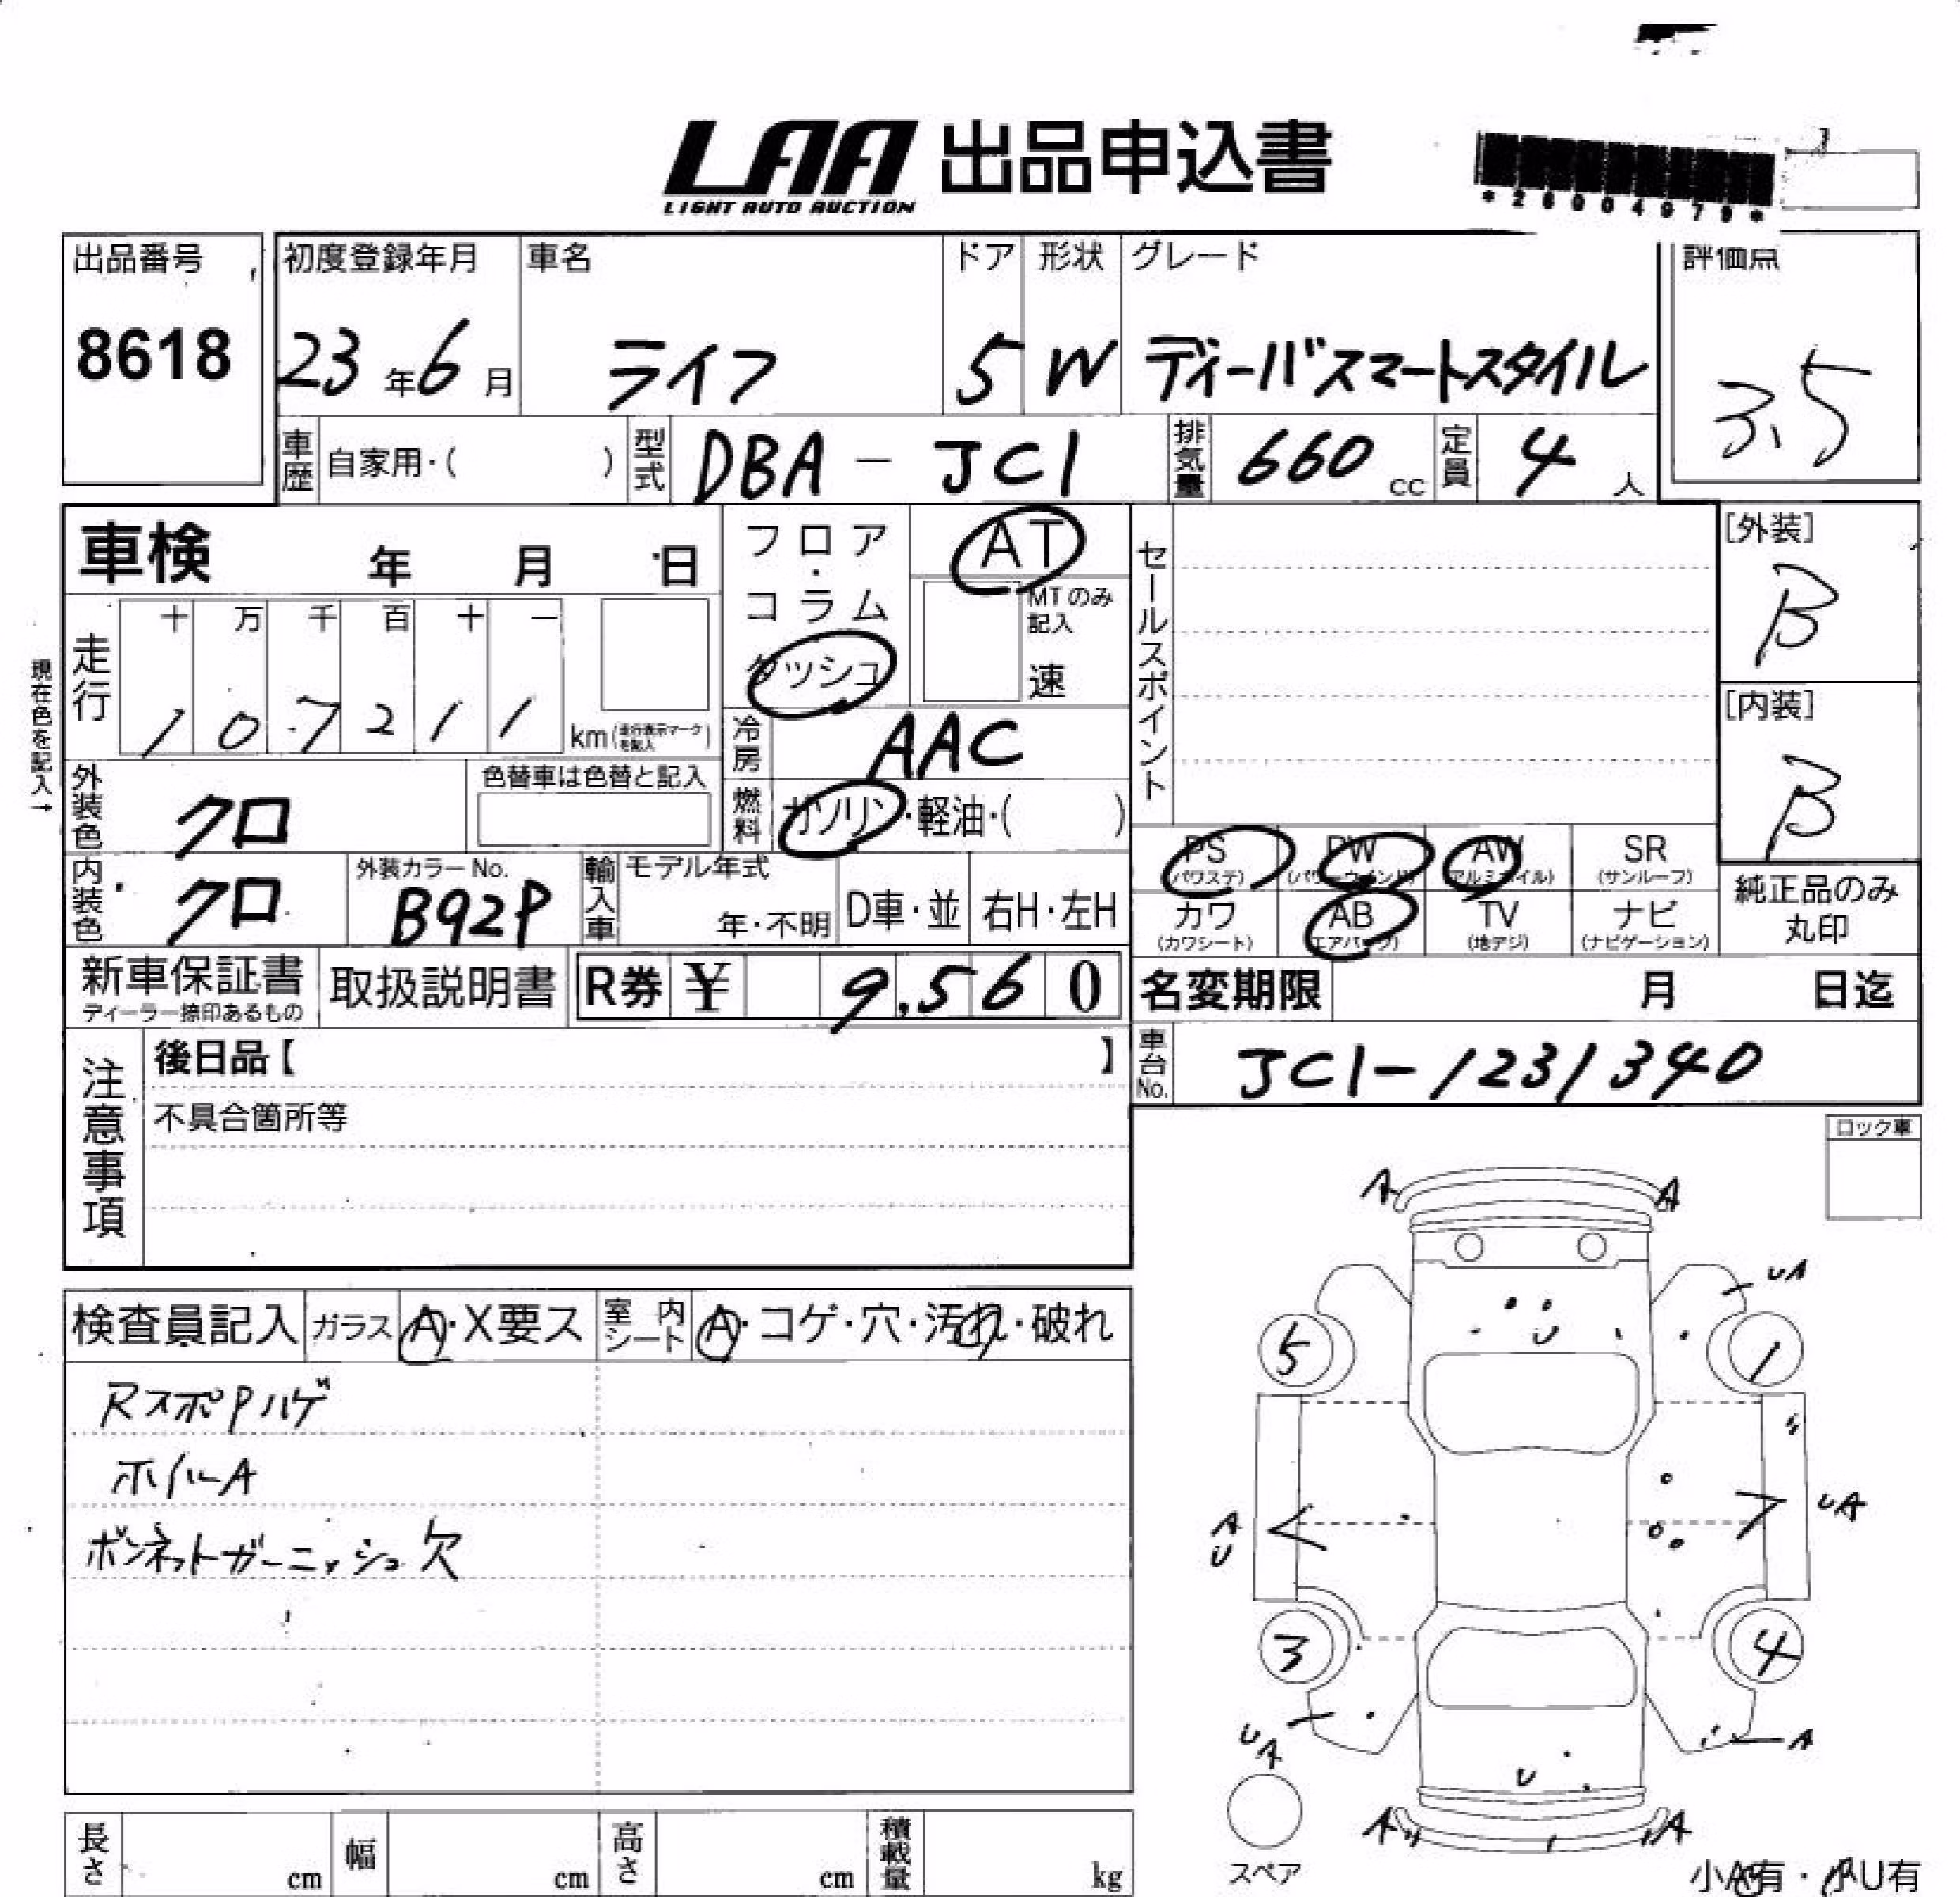 LAA 出品申込書
LIGHT AUTO AUCTION
*26004979*
出品番号 初度登録年月 車名 ドア 形状 グレード 評価点
8618 23年6月 ライフ 5 W ディーバスマートスタイル 3.5
車歴 自家用・( ) 型式 DBA-JC1 排気量 660 cc 定員 4 人
車検 年 月 日 フロア・コラム ダッシュ AT
MTのみ記入 速
セールスポイント
[外装] B
[内装] B
現在色を記入→
走行 十 万 千 百 十 一
1 0 7 2 1 1 km(走行表示マークを記入)
冷房 AAC
外装色 クロ 色替車は色替と記入
燃料 ガソリン・軽油・( )
内装色 クロ 外装カラーNo. B92P 輸入車 モデル年式 年・不明 D車・並 右H・左H
PS (パワステ) PW (パワーウインド) AW (アルミホイル) SR (サンルーフ)
カワ (カワシート) AB (エアバッグ) TV (地デジ) ナビ (ナビゲーション)
純正品のみ丸印
新車保証書 ディーラー捺印あるもの 取扱説明書 R券 ¥ 9,560
名変期限 月 日迄
車台No. JC1-1231340
注意事項
後日品【 】
不具合箇所等
ロック車
検査員記入 ガラス A・X要ス 室内シート A・コゲ・穴・汚れ・破れ
RスポPハゲ
ホイルA
ボンネットガーニッシュ欠
A A
UA
5 1
A
U
UA
3 4
U
A
A
U
U
A A
スペア
小A有・小U有
長さ cm 幅 cm 高さ cm 積載量 kg